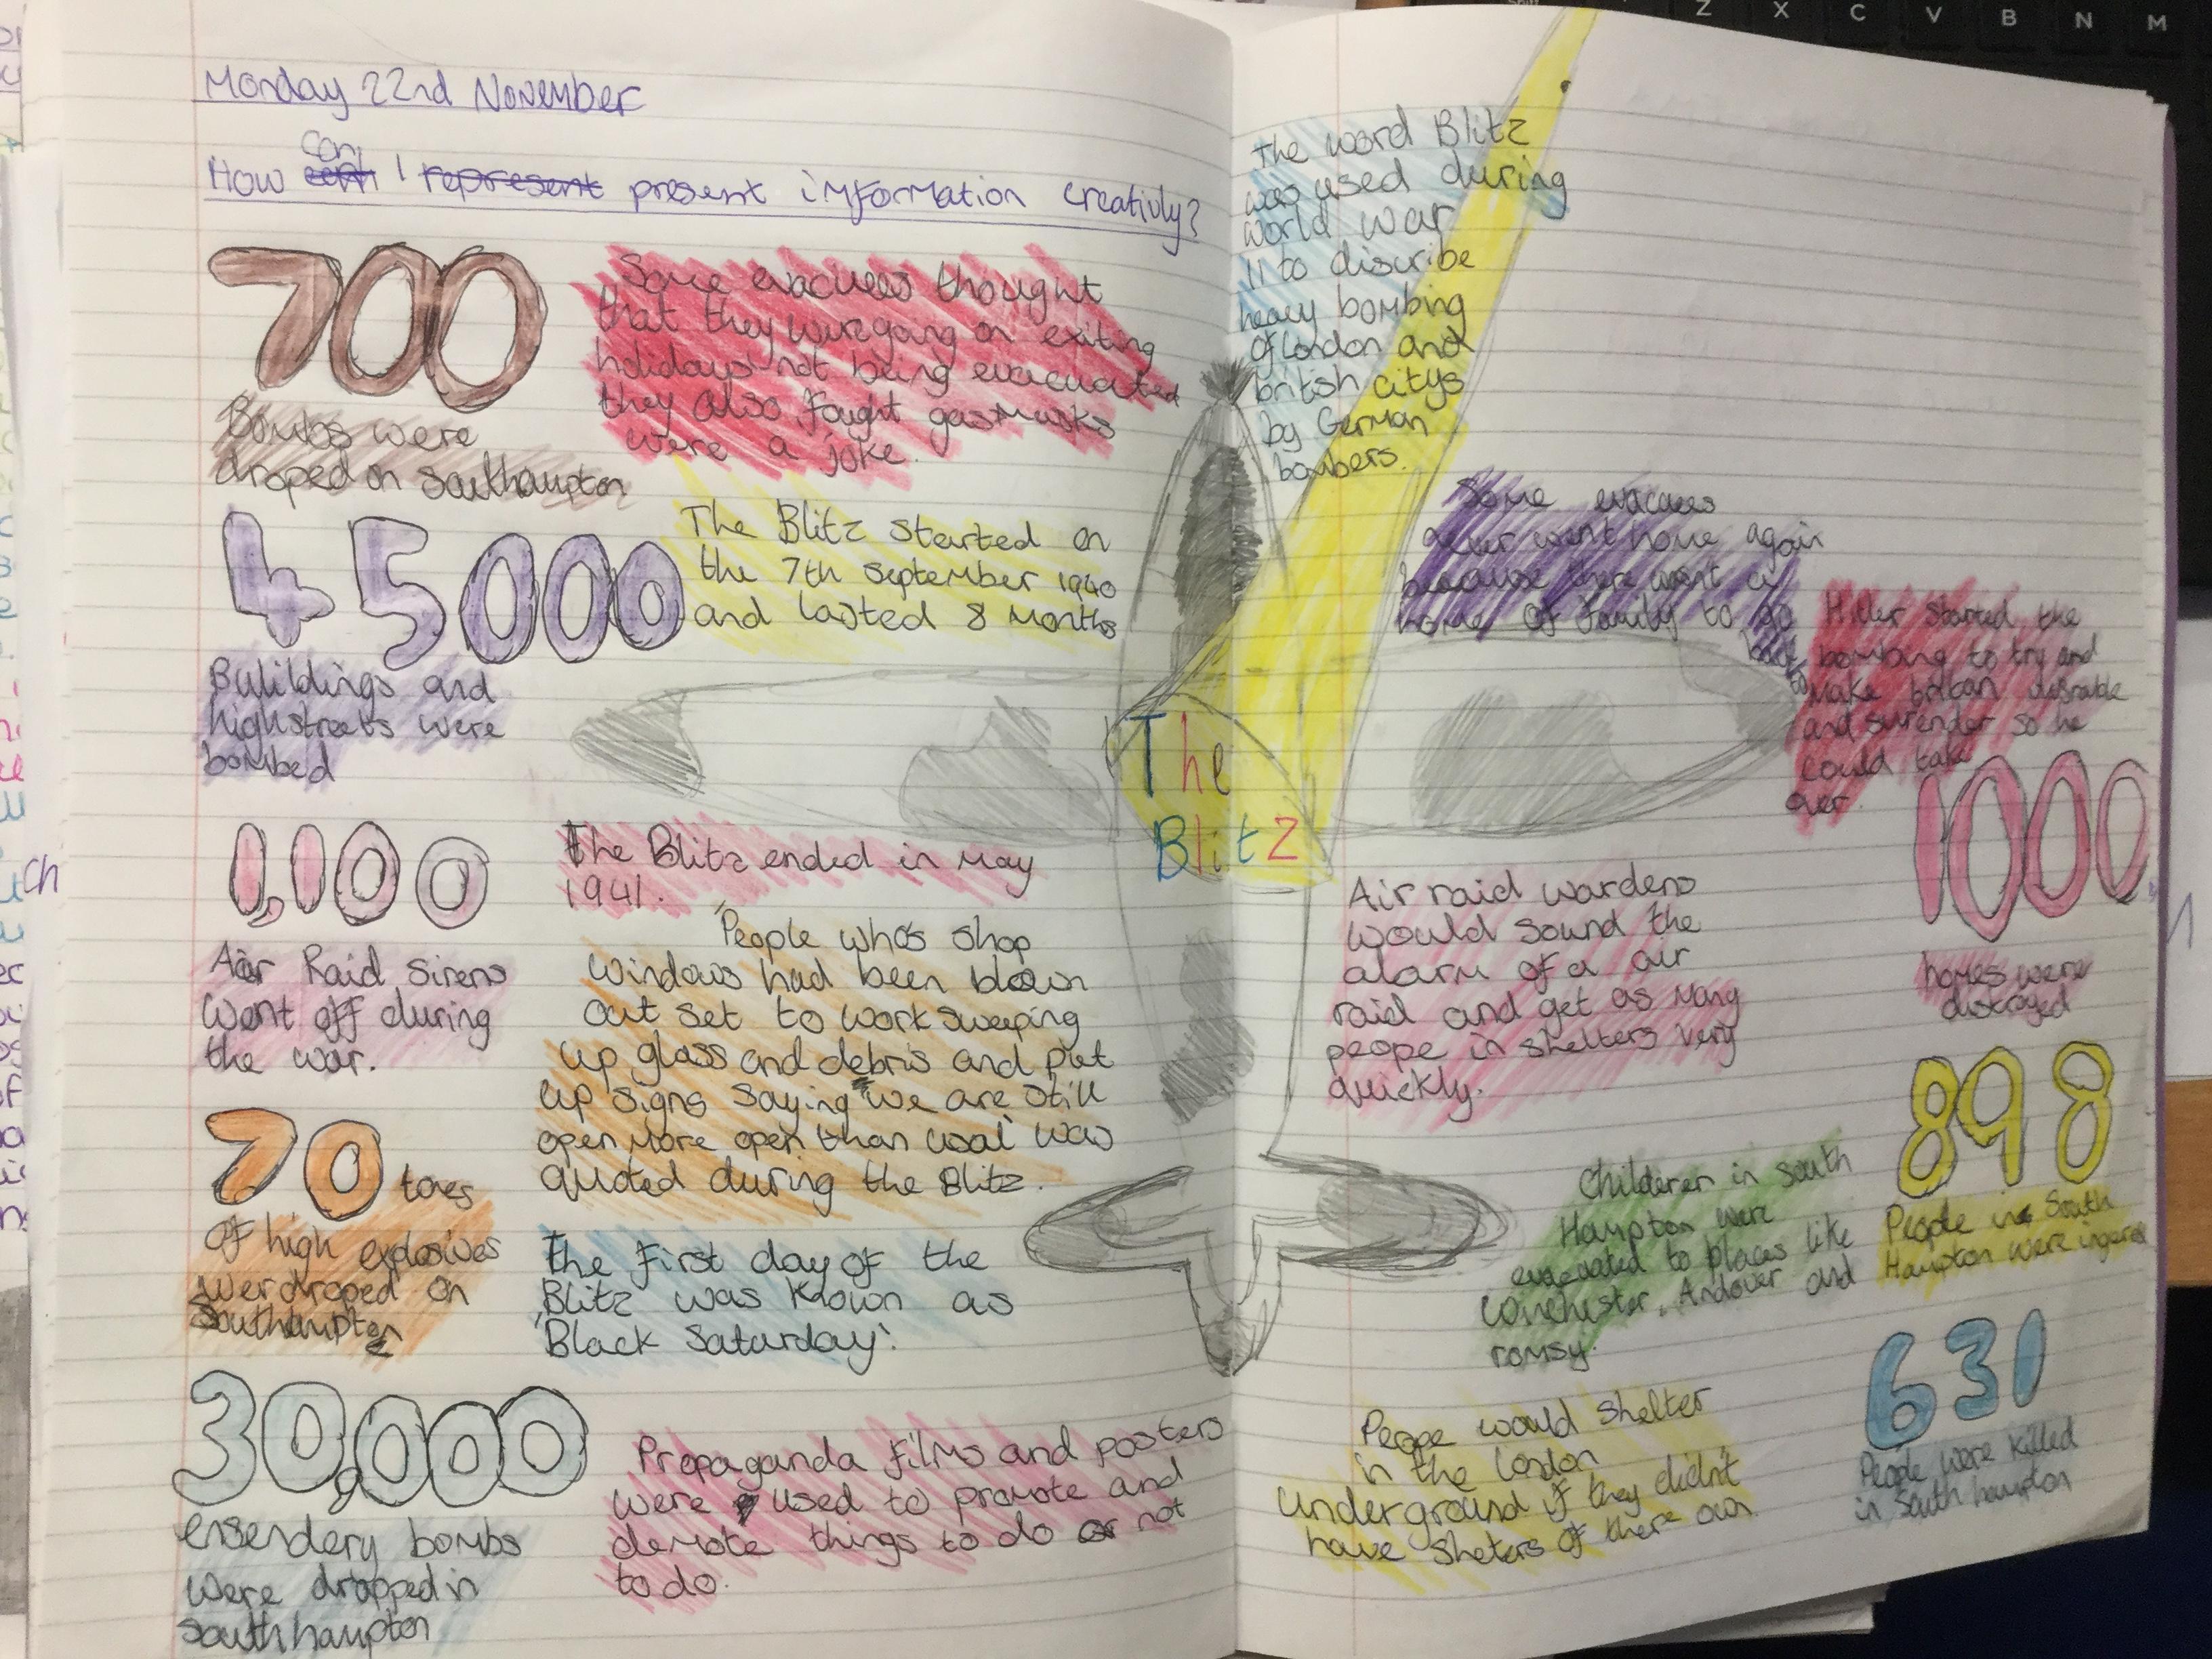 Monday 22nd November
can
How I represent present information creativly?
700
Bombs were
droped on Southampton
Some evacuees thought
that they were going on exiting
holidays not being evacuated
they also fought gasmasks
were a joke.
45000
Bulildings and
highstreets were
bombed
The Blitz started on
the 7th September 1940
and lasted 8 months
1,100
Air Raid Sirens
Went off during
the war.
The Blitz ended in May
1941.
People who's shop
windows had been blown
out set to work sweeping
up glass and debris and put
up signs saying we are still
open more open than usal was
quoted during the Blitz.
70 tones
of high explosives
wer droped on
Southampton
The first day of the
Blitz was known as
'Black Saturday'.
30,000
ensendery bombs
were dropped in
Southhampton
Propaganda films and posters
were used to promote and
demote things to do or not
to do.
The word Blitz
was used during
world war
11 to discribe
heavy bombing
of London and
british citys
by German
bombers.
The
Blitz
Some evacuees
never went home again
because there wasnt
home of family to go
back to
Hitler started the
bombing to try and
make
and surender so he
could take
over.
1000
homes were
distroyed
Air raid wardens
would sound the
alarm of a air
raid and get as many
peope in shelters very
quickly.
898
People in South
Hampton were
Childeren in South
Hampton were
evacuated to places like
Winchester, Andover and
romsy.
631
People were killed
in South hampton
Peope would shelter
in the London
underground if they didn't
have shelters of there own
ch
Z X C V B N M